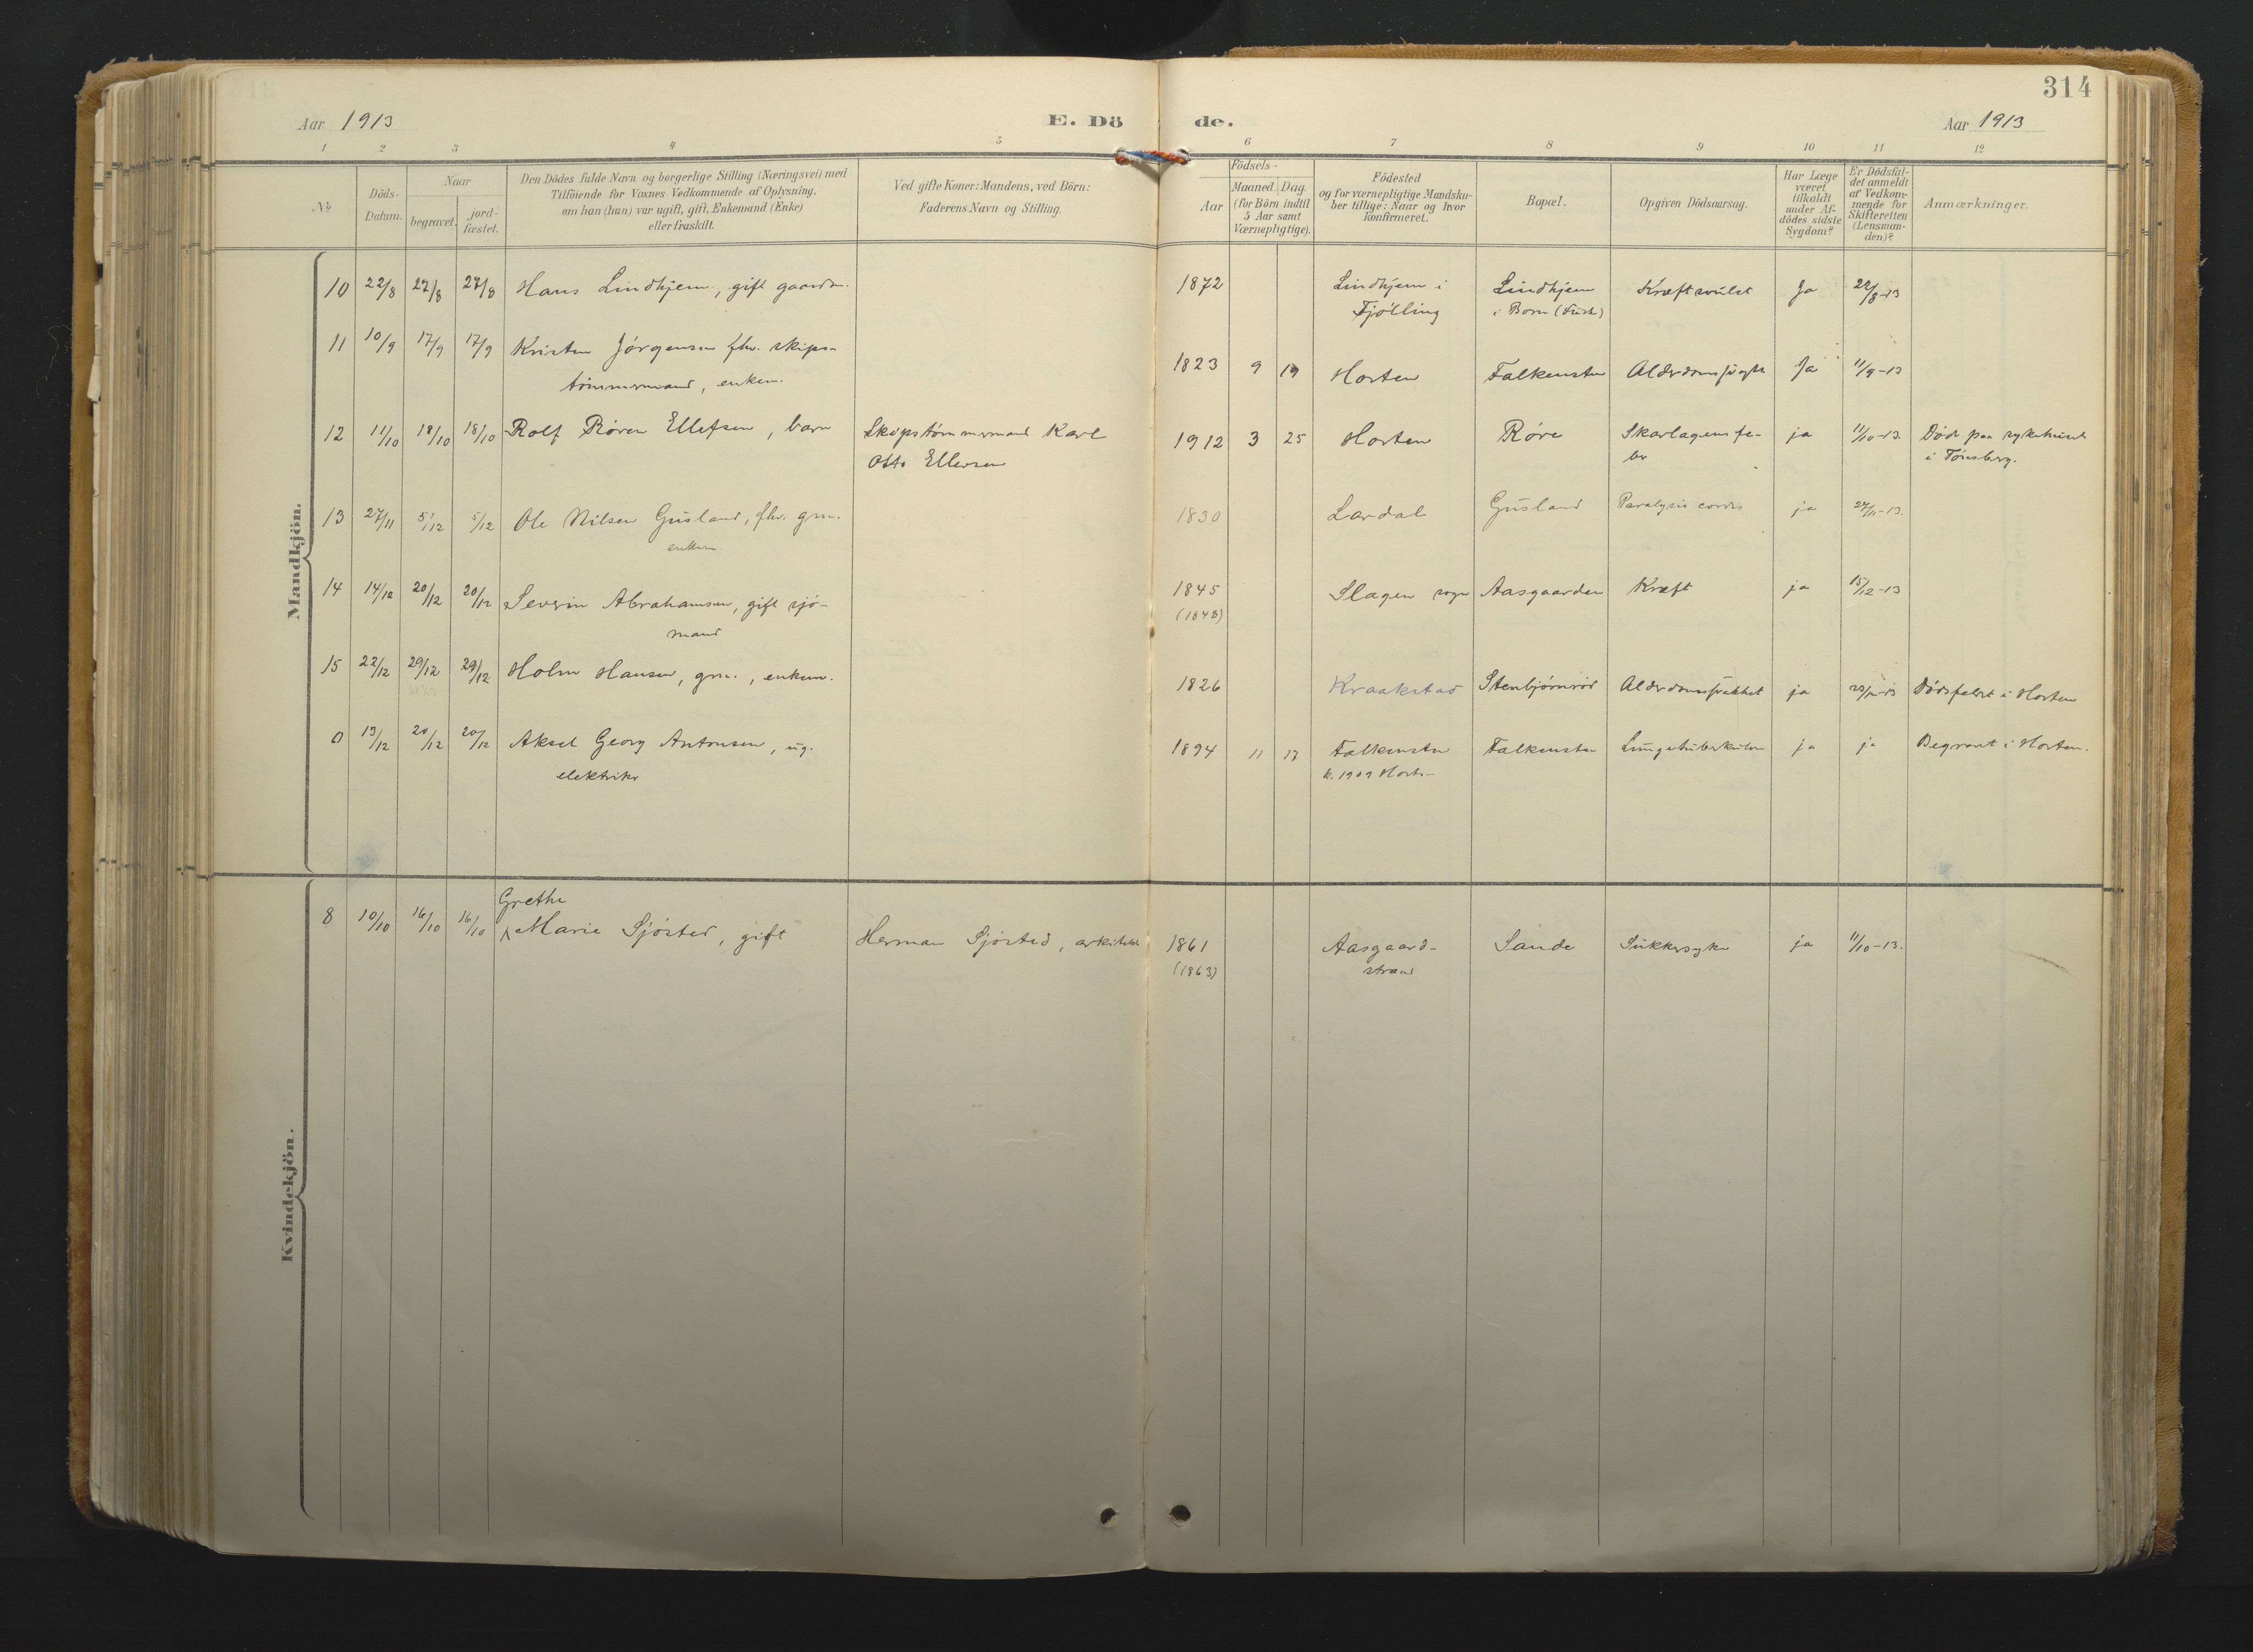 314
Aar 1913
E. Dö de.
Aar 1913
1 2 3 4 5 6 7 8 9 10 11 12
No
Döds-
Datum.
Naar
begravet.
jord-
fæstet.
Den Dödes fulde Navn og borgerlige Stilling (Næringsvei) med
Tilföiende for Voxnes Vedkommende af Oplysning,
om han (hun) var ugift, gift, Enkemand (Enke)
eller fraskilt.
Ved gifte Koner: Mandens, ved Börn:
Faderens Navn og Stilling.
Födsels-
Aar
Maaned. Dag.
(for Börn indtil
5 Aar samt
Værnepligtige).
Födested
og for værnepligtige Mandska-
ber tillige: Naar og hvor
konfirmeret.
Bopæl.
Opgiven Dödsaarsag.
Har Læge
været
tilkaldt
under Af-
dödes sidste
Sygdom?
Er Dödsfal-
det anmeldt
af Vedkom-
mende for
Skifteretten
(Lensman-
den)?
Anmærkninger.
Mandkjön.
10 22/8 27/8 27/8 Hans Lindhjem, gift gaardm. 1872 Lindhjem i Lindhjem Kræftsvulst Ja 22/8-13
Tjølling i Borre
11 10/9 17/9 17/9 Kristen Jørgensen fhv. skips-
tømmermand, enkem. 1823 9 19 Horten Falkensten Ja 11/9-13
12 11/10 18/10 18/10 Rolf Røren Ellefsen, barn Skipstømmermand Karl 1912 3 25 Horten Røre Skarlagensfe- ja 11/10-13. Død paa sykehuset
Otto Ellefsen ber i Tønsberg.
13 27/11 5/12 5/12 Ole Nilsen Gusland, fhv. gm. 1830 Lardal Gusland Paralysis cordis ja 27/11-13.
enkem.
14 14/12 20/12 20/12 Severin Abrahamsen, gift sjø- 1845 Slagen sogn Aasgaarden Kræft ja 15/12-13
mand (1848)
15 22/12 29/12 29/12 Holm Hansen, gm., enkem. 1826 Kraakstad Stenbjørnrød Alderdomssvakhet ja Dødsfaldet i Horten
0 13/12 20/12 20/12 Aksel Georg Antonsen, ug. 1894 11 13 Falkensten Falkensten Lungetuberkulose ja ja Begravet i Horten.
elektriker k. 1909 Horten
Kvindekjön.
Grethe
8 10/10 16/10 16/10 Marie Sjøsted, gift Herman Sjøsted, arkitekt 1861 Aasgaard- Sande Sukkersyke ja 11/10-13.
(1863) strand